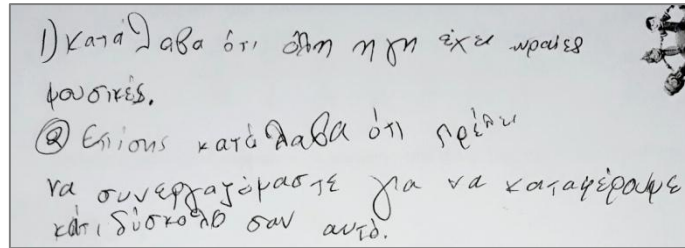 1) Κατάλαβα ότι όλη η γη έχει ωραίες
μουσικές.
② Επίσης κατάλαβα ότι πρέπει
να συνεργαζόμαστε για να καταφέρουμε
κάτι δύσκολο σαν αυτό.